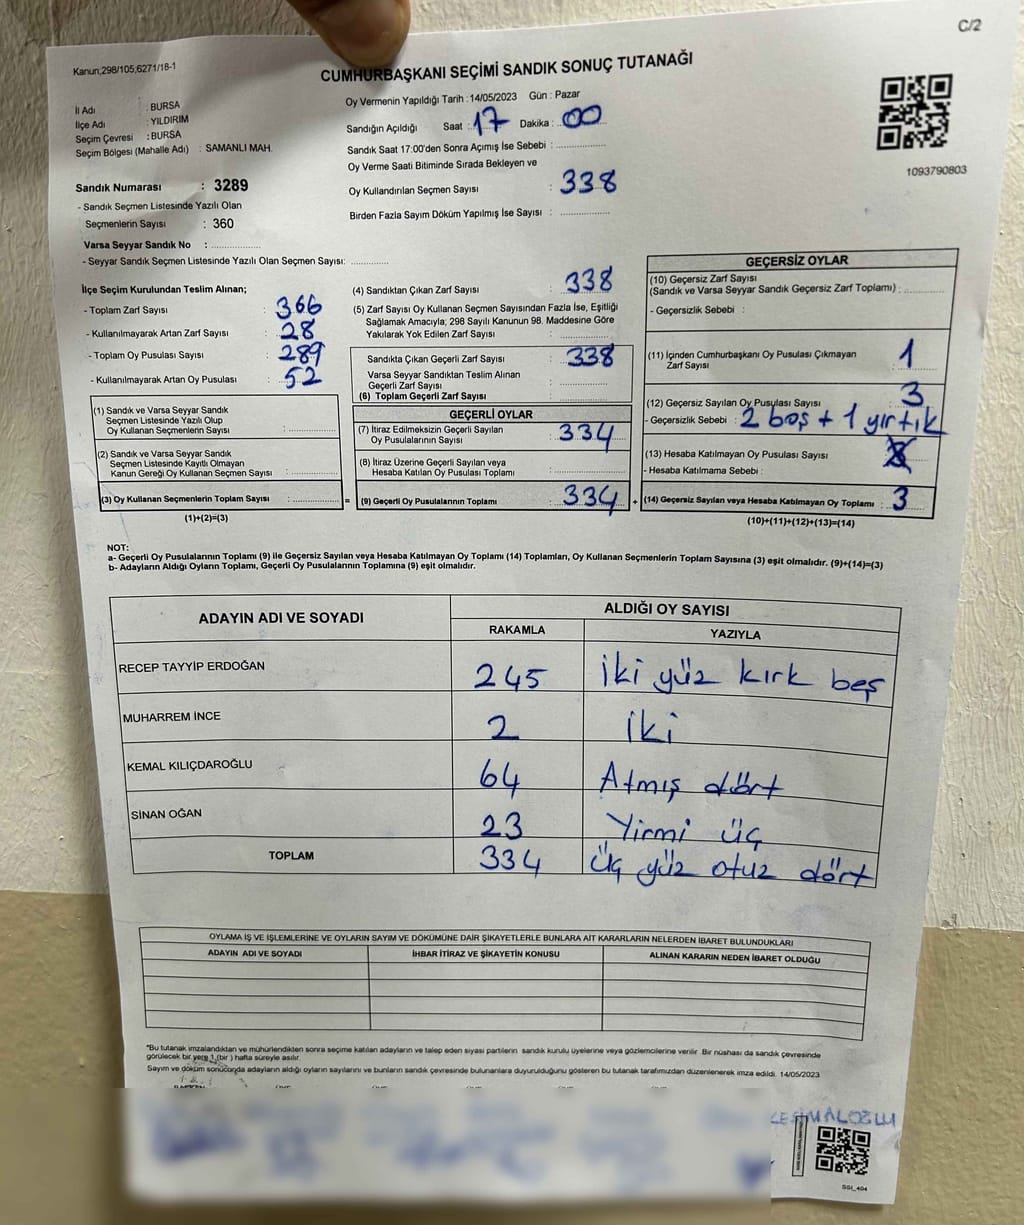 C/2
Kanun,298/105;6271/16-1
CUMHURBAŞKANI SEÇİMİ SANDIK SONUÇ TUTANAĞI
İl Adı : BURSA
İlçe Adı : YILDIRIM
Seçim Çevresi : BURSA
Seçim Bölgesi (Mahalle Adı) : SAMANLI MAH.
Sandık Numarası : 3289
- Sandık Seçmen Listesinde Yazılı Olan
Seçmenlerin Sayısı : 360
Varsa Seyyar Sandık No :
- Seyyar Sandık Seçmen Listesinde Yazılı Olan Seçmen Sayısı:
Oy Vermenin Yapıldığı Tarih :14/05/2023 Gün : Pazar
Sandığın Açıldığı Saat : 17 Dakika : 00
Sandık Saat 17:00'den Sonra Açımış İse Sebebi :
Oy Verme Saati Bitiminde Sırada Bekleyen ve
Oy Kullandırılan Seçmen Sayısı : 338
Birden Fazla Sayım Döküm Yapılmış İse Sayısı :
1093790803
İlçe Seçim Kurulundan Teslim Alınan;
- Toplam Zarf Sayısı : 366
- Kullanılmayarak Artan Zarf Sayısı : 28
- Toplam Oy Pusulası Sayısı : 289
- Kullanılmayarak Artan Oy Pusulası : 52
(1) Sandık ve Varsa Seyyar Sandık
Seçmen Listesinde Yazılı Olup
Oy Kullanan Seçmenlerin Sayısı :
(2) Sandık ve Varsa Seyyar Sandık
Seçmen Listesinde Kayıtlı Olmayan
Kanun Gereği Oy Kullanan Seçmen Sayısı :
(3) Oy Kullanan Seçmenlerin Toplam Sayısı : =
(1)+(2)=(3)
(4) Sandıktan Çıkan Zarf Sayısı : 338
(5) Zarf Sayısı Oy Kullanan Seçmen Sayısından Fazla İse, Eşitliği
Sağlamak Amacıyla; 298 Sayılı Kanunun 98. Maddesine Göre
Yakılarak Yok Edilen Zarf Sayısı :
Sandıkta Çıkan Geçerli Zarf Sayısı : 338
Varsa Seyyar Sandıktan Teslim Alınan
Geçerli Zarf Sayısı :
(6) Toplam Geçerli Zarf Sayısı :
GEÇERLİ OYLAR
(7) İtiraz Edilmeksizin Geçerli Sayılan
Oy Pusulalarının Sayısı : 334
(8) İtiraz Üzerine Geçerli Sayılan veya
Hesaba Katılan Oy Pusulası Toplamı :
(9) Geçerli Oy Pusulalarının Toplamı : 334 +
GEÇERSİZ OYLAR
(10) Geçersiz Zarf Sayısı
(Sandık ve Varsa Seyyar Sandık Geçersiz Zarf Toplamı) :
- Geçersizlik Sebebi :
(11) İçinden Cumhurbaşkanı Oy Pusulası Çıkmayan
Zarf Sayısı : 1
(12) Geçersiz Sayılan Oy Pusulası Sayısı : 3
- Geçersizlik Sebebi : 2 boş + 1 yırtık
(13) Hesaba Katılmayan Oy Pusulası Sayısı :
- Hesaba Katılmama Sebebi :
(14) Geçersiz Sayılan veya Hesaba Katılmayan Oy Toplamı : 3
(10)+(11)+(12)+(13)=(14)
NOT:
a- Geçerli Oy Pusulalarının Toplamı (9) ile Geçersiz Sayılan veya Hesaba Katılmayan Oy Toplamı (14) Toplamları, Oy Kullanan Seçmenlerin Toplam Sayısına (3) eşit olmalıdır. (9)+(14)=(3)
b- Adayların Aldığı Oyların Toplamı, Geçerli Oy Pusulalarının Toplamına (9) eşit olmalıdır.
ADAYIN ADI VE SOYADI ALDIĞI OY SAYISI
RAKAMLA YAZIYLA
RECEP TAYYİP ERDOĞAN 245 İki yüz kırk beş
MUHARREM İNCE 2 İki
KEMAL KILIÇDAROĞLU 64 Atmış dört
SİNAN OĞAN 23 Yirmi üç
TOPLAM 334 Üç yüz otuz dört
OYLAMA İŞ VE İŞLEMLERİNE VE OYLARIN SAYIM VE DÖKÜMÜNE DAİR ŞİKAYETLERLE BUNLARA AİT KARARLARIN NELERDEN İBARET BULUNDUKLARI
ADAYIN ADI VE SOYADI İHBAR İTİRAZ VE ŞİKAYETİN KONUSU ALINAN KARARIN NEDEN İBARET OLDUĞU
*Bu tutanak imzalandıktan ve mühürlendikten sonra seçime katılan adayların ve talep eden siyasi partilerin sandık kurulu üyelerine veya gözlemcilerine verilir. Bir nüshası da sandık çevresinde
görülecek bir yere 1 (bir) hafta süreyle asılır.
Sayım ve döküm sonucunda adayların aldığı oyların sayılarını ve bunların sandık çevresinde bulunanlara duyurulduğunu gösteren bu tutanak tarafımızdan düzenlenerek imza edildi. 14/05/2023